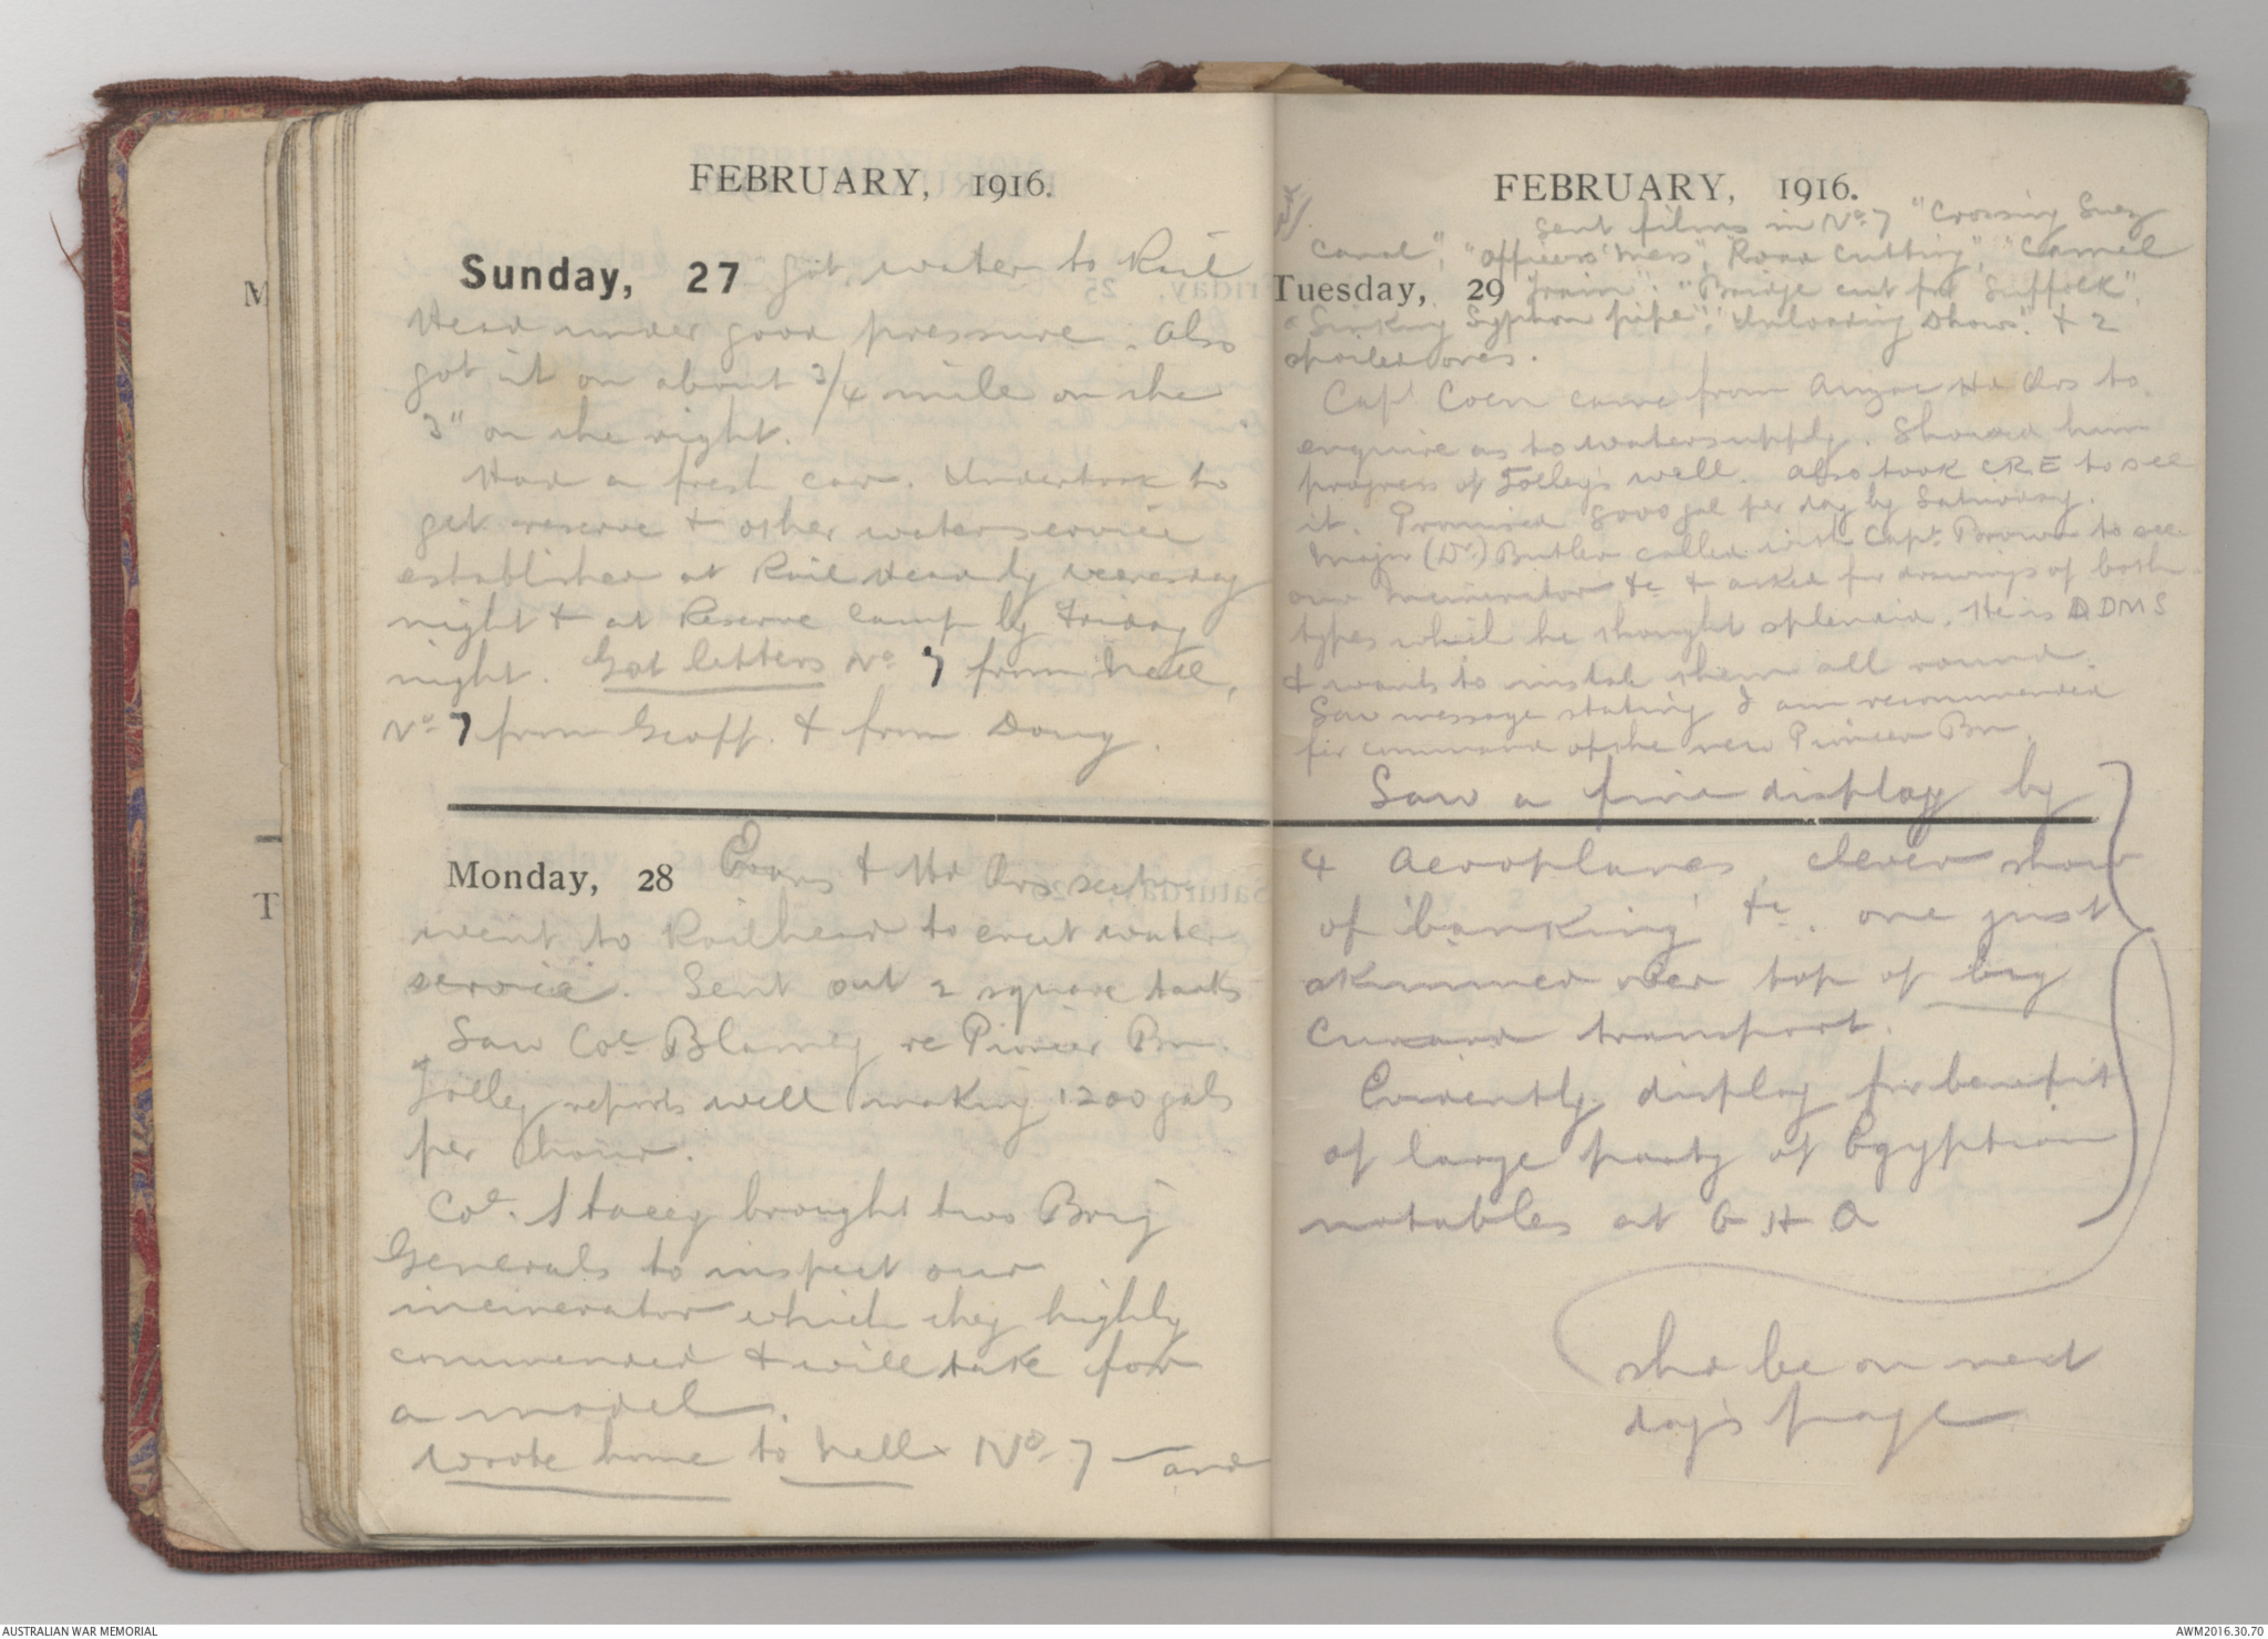 FEBRUARY, 1916.
Sunday, 27 got water to Rail
Head under good pressure. Also
got it on about 3/4 mile on the
3" on the right.
Had a fresh cow. Undertook to
get reserve & other water service
established at Rail Head by Wednesday
night & at Reserve Camp by Friday
night. Got letters No 7 from Nell,
No 7 from Geoff. & from Doug.
Monday, 28 Evans & Hd Qrs section
went to Railhead to erect water
service. Sent out 2 square tanks
Saw Col Blamey re Pioneer Bn.
Jolley reports well making 1200 gals
per hour.
Col. Stacey brought two Brig
Generals to inspect our
incinerator which they highly
commended & will take for
a model.
Wrote home to Nell No 7 – and
FEBRUARY, 1916.
Sent films in No 7 "Crossing Suez
Canal", "Officers' Mess", Road Cutting", "Camel
Tuesday, 29 Train". "Bridge cut for Suffolk",
"Sinking Syphon pipe", "Unloading Dhows". & 2
spoiled ones.
Capt Coen came from Anzac Hd Qrs to
enquire as to water supply. Showed him
progress of Jolley's well. Also took CRE to see
it. Promised 8000 gal per day by Saturday.
Major (Dr.) Butler called with Capt Brown to see
our Incinerator &c & asked for drawings of both
types which he thought splendid. He is ADDMS
& wants to instal them all round.
Saw message stating I am recommended
for command of the new Pioneer Bn.
Saw a fine display by
4 Aeroplanes, clever show
of 'banking' &c. one just
skimmed over top of big
Cunard transport.
Evidently display for benefit
of large party of Egyptian
notables at G H Q
shd be on next
day's page
M
T
AUSTRALIAN WAR MEMORIAL
AWM2016.30.70